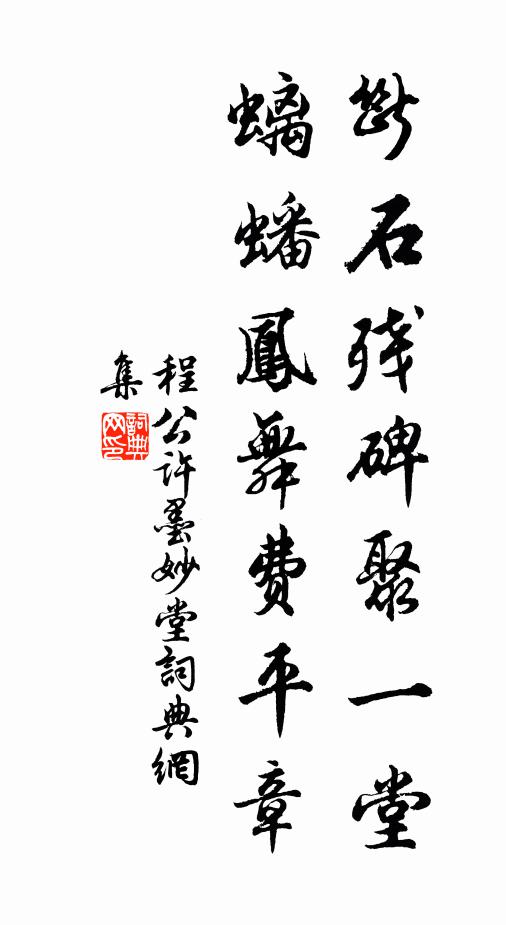 斷石殘碑聚一堂
螭蟠鳳舞費平章
程公許墨妙堂詞典網
集
詞典網印